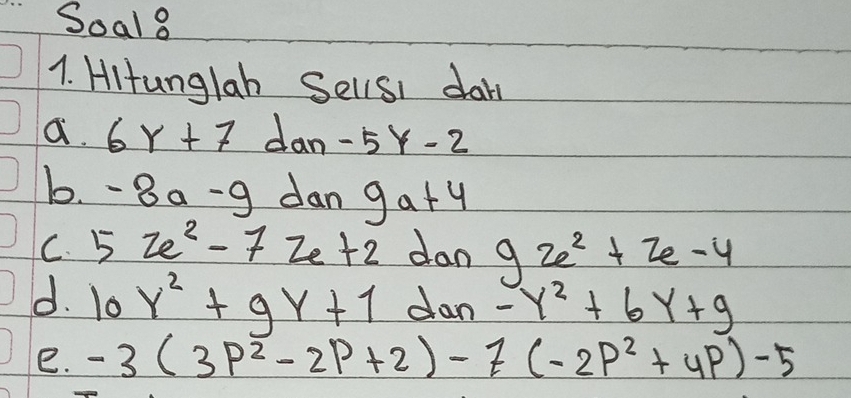 Soal:
1. Hitunglah Selisi dari
a. 6Y + 7 dan -5Y - 2
b. -8a - 9 dan 9a + 4
c. 5 ze² - 7 ze + 2 dan 9 ze² + ze - 4
d. 10 Y² + 9Y + 1 dan -Y² + 6Y + 9
e. -3 (3P² - 2P + 2) - 7 (-2P² + 4P) - 5